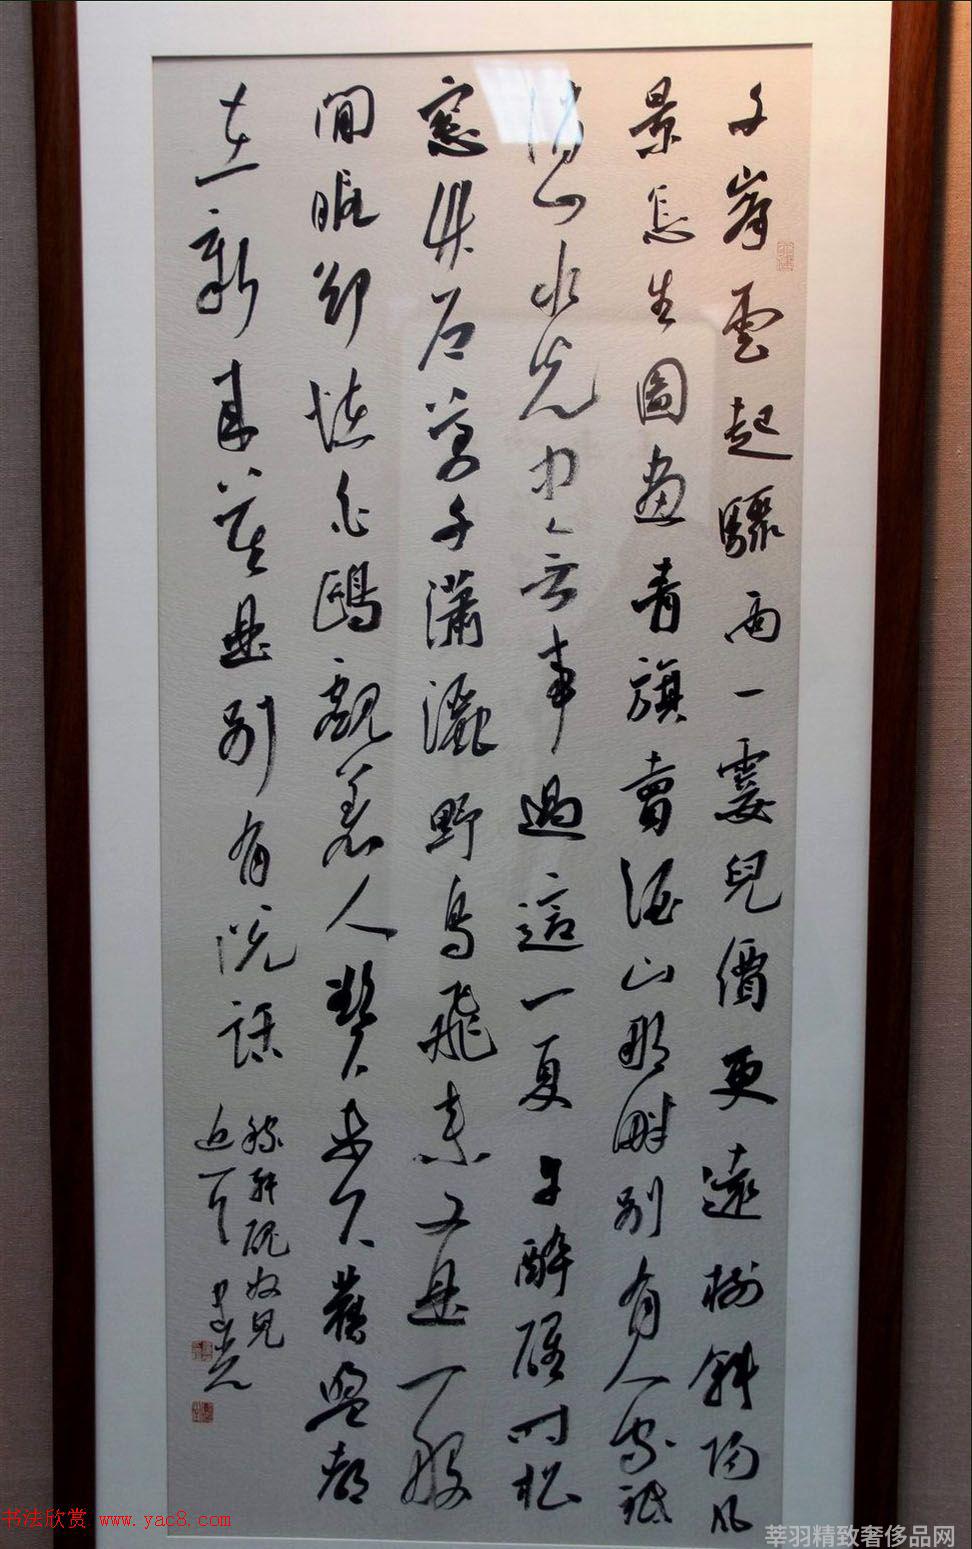 千峯雲起驟雨一霎兒價更遠樹斜陽風
景怎生圖畫青旗賣酒山那畔別有人家祇
消山水光中無事過這一夏午醉醒時松
窓竹戶萬千瀟灑野鳥飛来又是一般
閒暇却怪白鷗覷着人欲下未下舊盟都
在新来莫是別有説話
稼軒醜奴兒
近
书法欣赏 www.yac8.com
莘羽精致奢侈品网